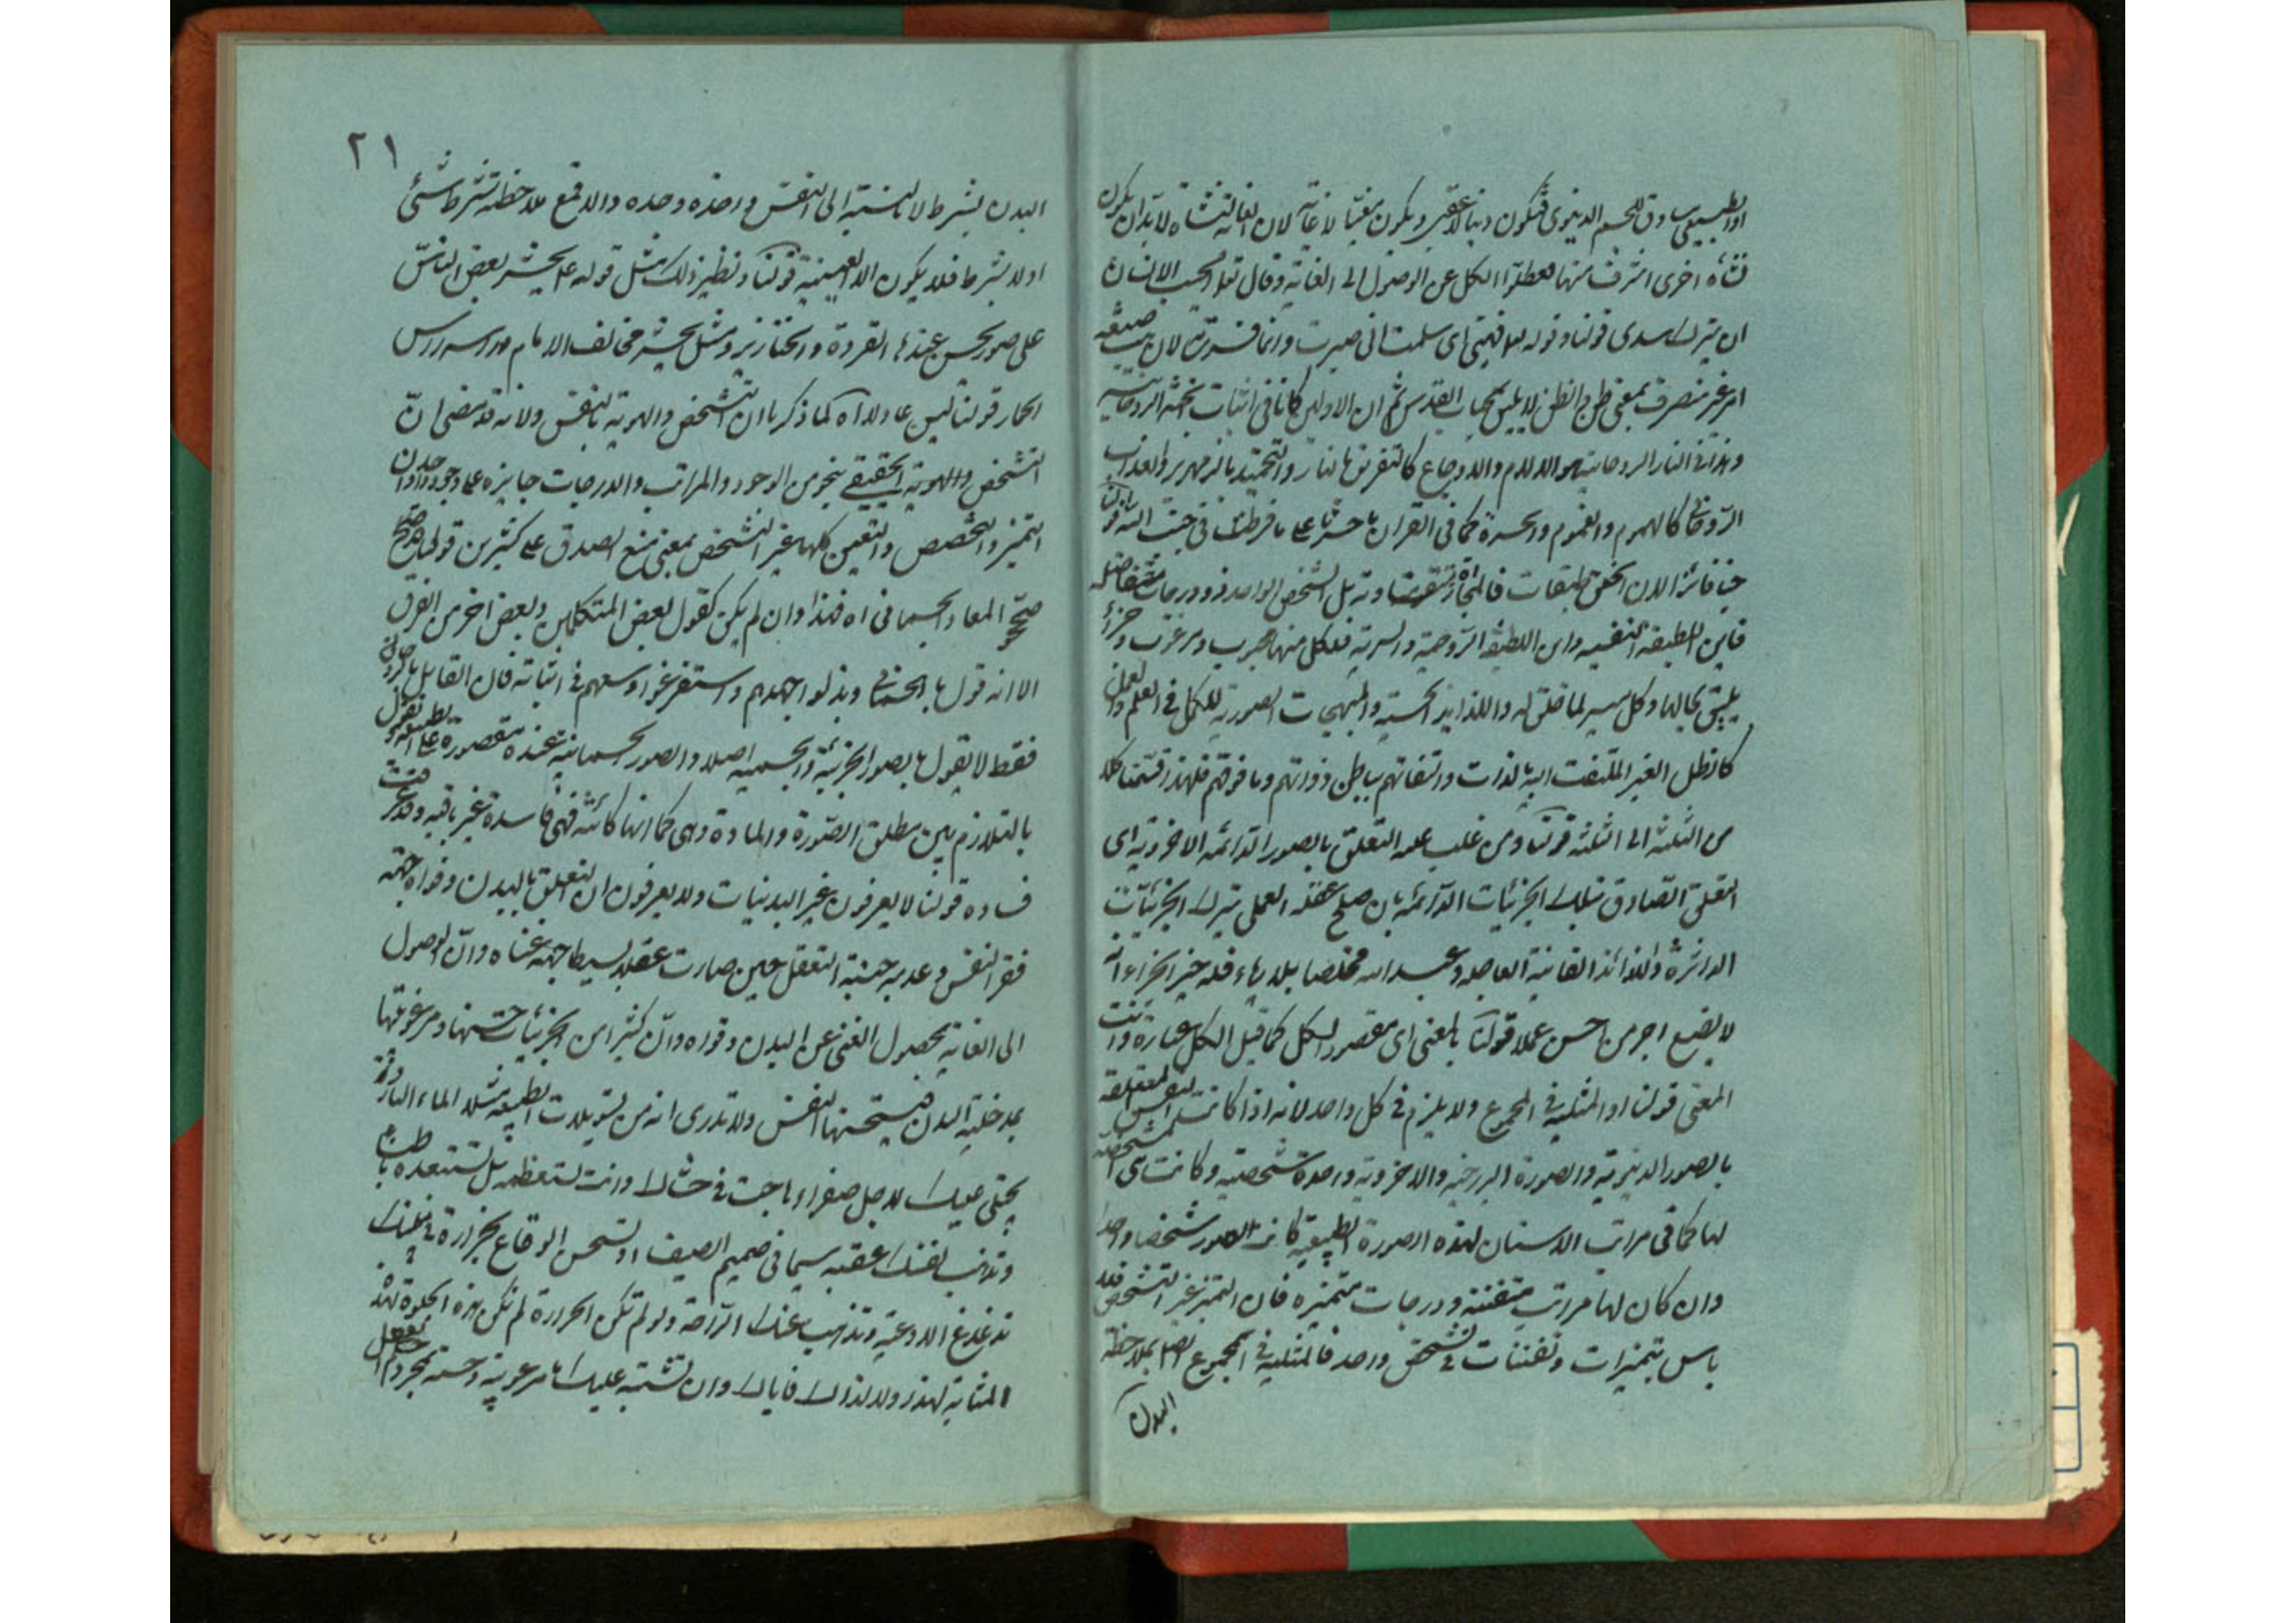 او الطبيعى ساوق للجسم الدنيوى فتكون دنيا لا عقبى ويكون مغيا لا غاية لان الغاية نشأة لابد ان يكون
نشأة اخرى اشرف منها لعطلوا الكل عن الوصول الى الغاية وقال تعالى ايحسب الانسان
ان يترك سدى قولنا وقوله اى سلمت انى صيرت وانما فسرت لان صيغته
امر غير منصرف بمعنى طرح الظن لا يليق بجناب القدس ثم ان الاولين كانا فى اثبات الجنة الروحانية
وهذا فى النار الروحانية هو الالام والاوجاع كالتفريق بالنار والتجميد بالزمهرير والعذاب
الروحانى كالهموم والغموم والحسرة كما فى القران يا حسرتا على ما فرطت فى جنب الله قولنا
فان الخلق طبقات فالمجازاة متفاوتة بل الشخص الواحد ذو درجات متفاضلة
فاين اللطيفة النفسية واين اللطيفة الروحية والسرية فلكل منها محبوب ومرغوب وجزاء
يليق بحالها وكل ميسر لما خلق له واللذايذ الحسية والمبهجات الصورية للكمل فى العلم والعمل
كالظل الغير الملتفت اليه بالذات والتفاتهم بباطن ذواتهم وما فوقهم فلهذا قسمنا كلا
من الثلثة الى الثلثة قولنا ومن غلب عليه التعلق بالصور الدائمة الاخروية اى
التعلق الصادق بتلك الجزئيات الدائمة بان صلح عقله العملى بترك الجزئيات
الداثرة واللذائذ الفانية العاجلة وعبد الله مخلصا بلا رياء فله خير الجزاء انه
لا يضيع اجر من احسن عملا قولنا بالمعنى اى مقصود الكل كما قيل الكل عبارة وانت
المعنى قولنا او المثلية فى المجموع ولا يلزم فى كل واحد لانه اذا كانت النفس المتعلقة
بالصور الدنيوية والصورة البرزخية والاخروية واحدة شخصية وكانت هى المشخصة
لها كما فى مراتب الاسنان لهذه الصورة الطبيعية كانت الصور شخصا واحدا
وان كان لها مراتب متفننة ودرجات متميزه فان التميز غير التشخص فلا
باس بتميزات وتفننات فى تشخص واحد فالمثلية فى المجموع بملاحظة
البدن
٢١
البدن بشرط لا بالنسبة الى النفس واخذه وحده والا فمع ملاحظته بشرط شئ
او لا بشرط فلا يكون الا العينية قولنا ونظير ذلك مثل قوله يحشر بعض الناس
على صور يحسن عندها القردة والخنازير ومثل يحشر مخالف الامام وراسه راس
الحمار قولنا ليس عا ولا اه كما ذكرنا ان التشخص والهوية بالنفس ولانه قد مضى ان
التشخص والهوية الحقيقي بنحو من الوجود والمراتب والدرجات جايزه على وجود واحد وان
التميز والتخصص والتعين كلها غير التشخص بمعنى منع الصدق على كثيرين قولنا
صحح المعاد الجسمانى اه فهذا وان لم يكن كقول بعض المتكلمين وبعض اخر من الفرق
الا انه قول بالجسمانى وبذلوا جهدهم واستفرغوا وسعهم فى اثباته فان القايل بالروحانى
فقط لا يقول بالصور الجزئية والجسمية اصلا والصور الجسمانية عنده مقصورة على الطبيعية ويقول
بالتلازم بين مطلق الصورة والمادة وهى كما انها كائنة فهى فاسدة غير باقية وقد عرفت
فساده قولنا لا يعرفون غير البدنيات ولا يعرفون ان التعلق بالبدن وقواه جهة
فقر النفس وعدمه حيثية التعقل حين صارت عقلا بسيطا جهة غناه وان الوصول
الى الغاية بحصول الغنى عن البدن وقواه وان كثيرا من الجزئيات حسنها ومرغوبيتها
بمدخلية البدن فيستحسنها النفس ولا تدرى انه من تسويلات الطبيعة مثلا الماء البارد
يحلى عليك لاجل صفراء هاجت فى حشاك وانت تستعظمه بل تستعده بالطبع
وتذهب نفسك عقيبه سيما فى صميم الصيف او تستحسن الوقاع بحرارة فى بدنك
تدغدغ الاوعية وتذهب عنك الراحة ولو لم تكن الحرارة لم تكن هذه الحلاوة لهذا
المثابة لهذا ولا لذاك فاياك وان تشتبه عليك مرغوبية وحسنة